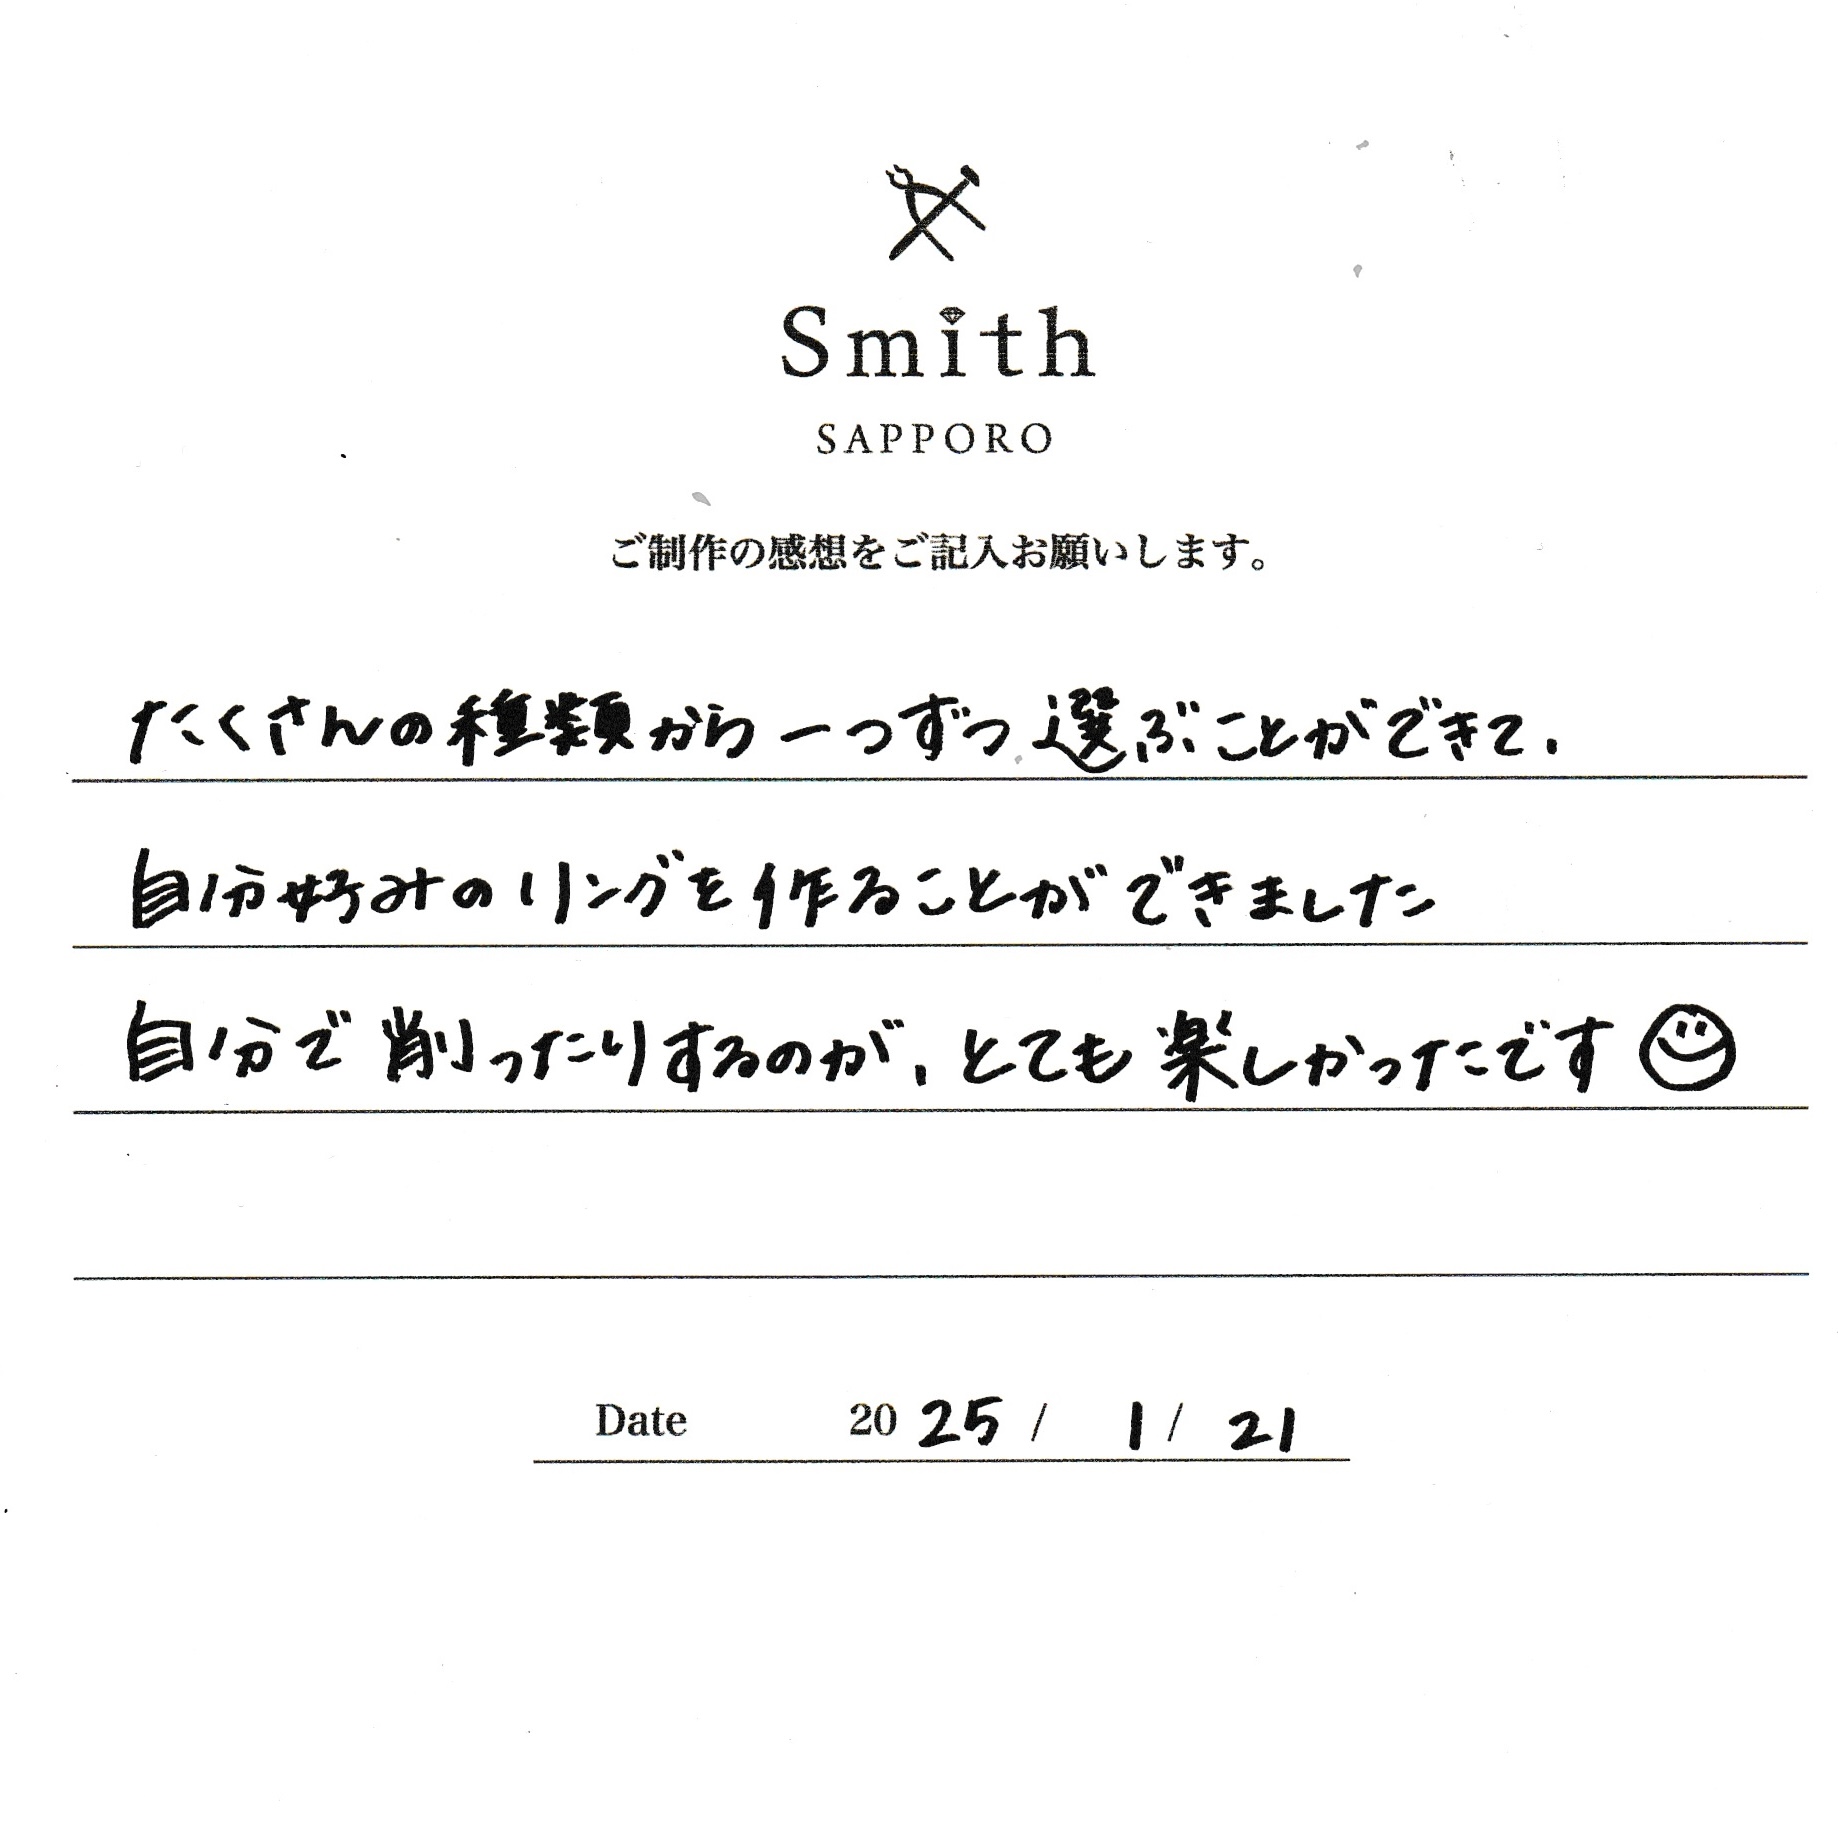 Smith
SAPPORO
ご制作の感想をご記入お願いします。
たくさんの種類から一つずつ選ぶことができて、
自分好みのリングを作ることができました
自分で削ったりするのが、とても楽しかったです
Date 2025/1/21